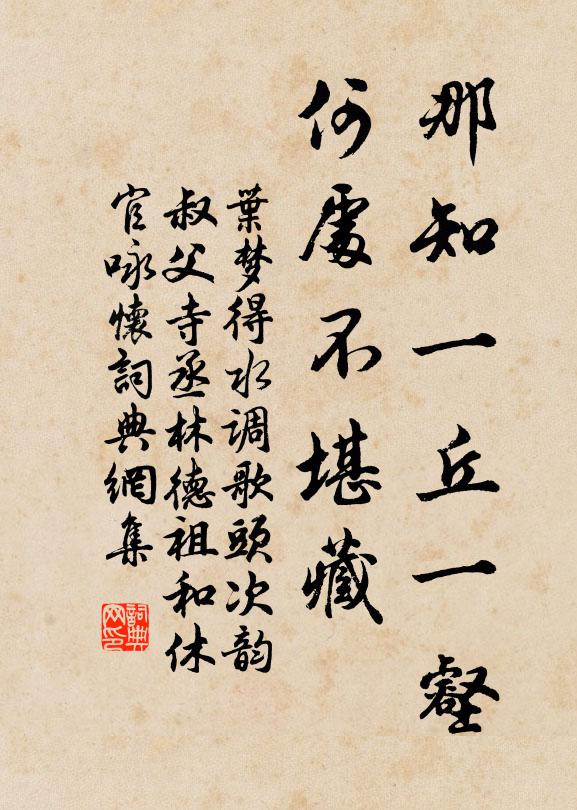 那知一丘一壑
何處不堪藏
葉梦得水调歌頭次韵
叔父寺丞林德祖和休
官咏懷詞典網集
詞典
网印